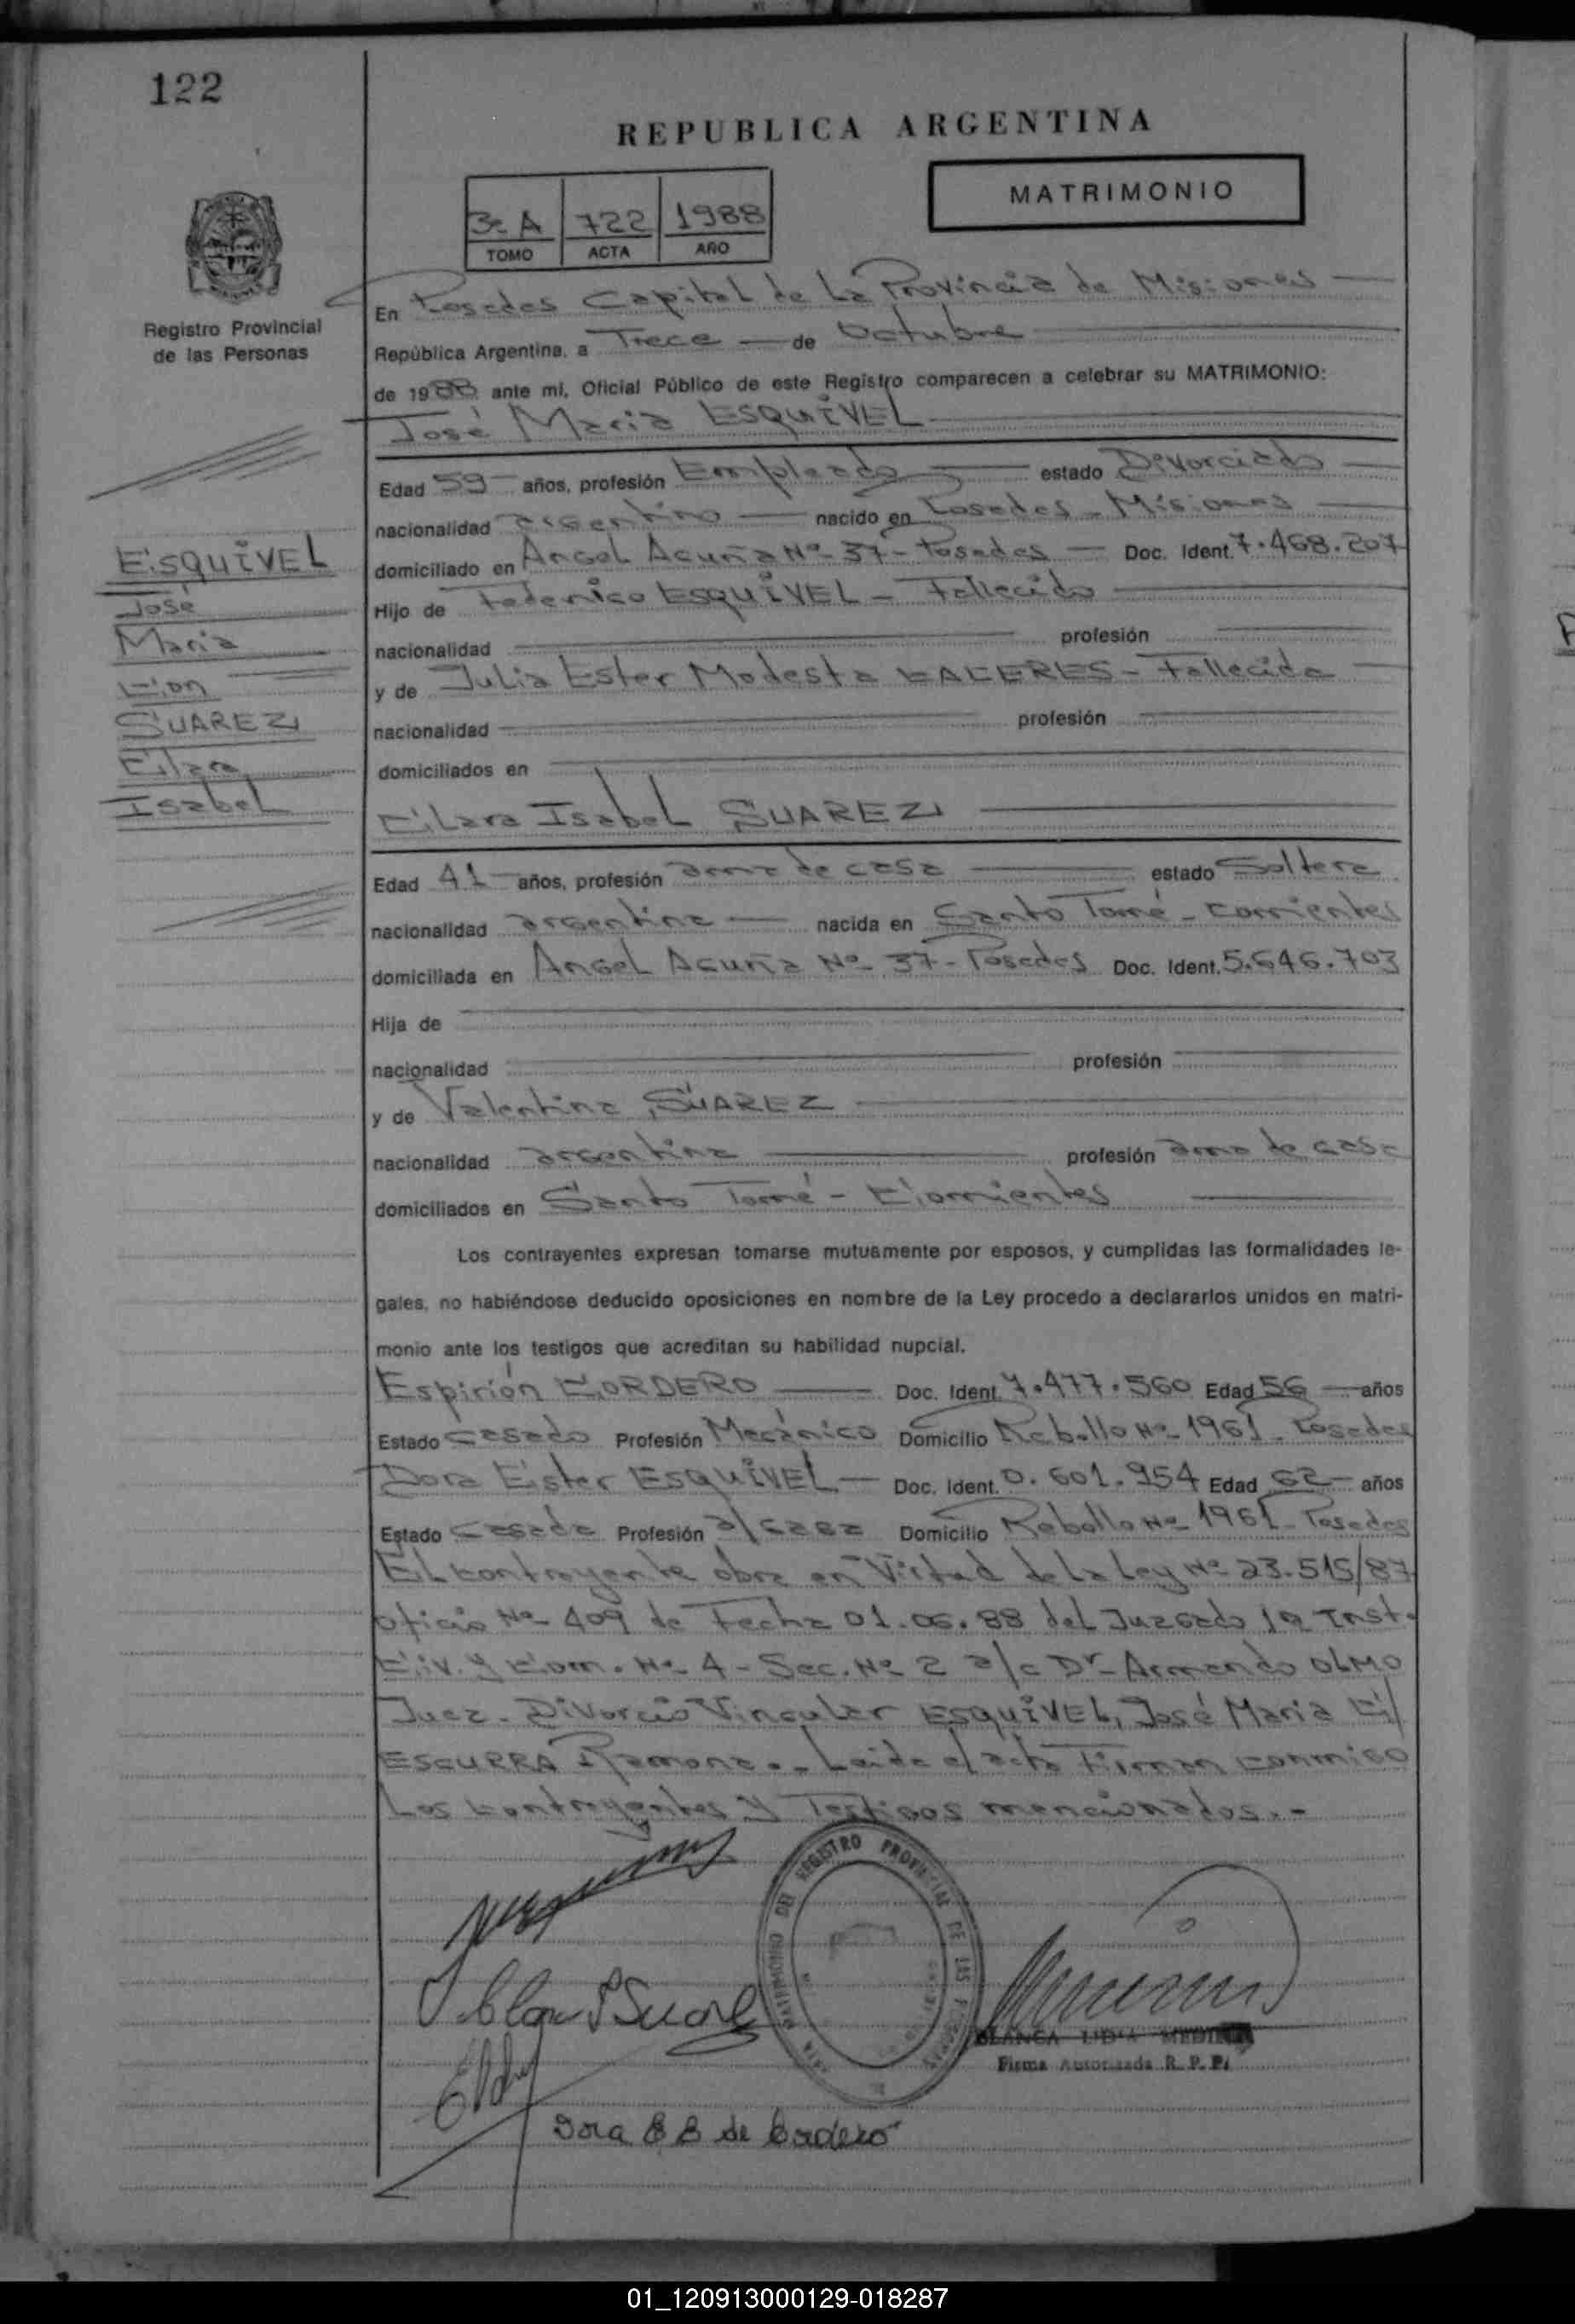 122
REPUBLICA ARGENTINA
MATRIMONIO
3º A 722 1988
TOMO ACTA AÑO
Registro Provincial
de las Personas
En Posadas Capital de La Provincia de Misiones
República Argentina, a Trece de Octubre
de 1988 ante mi, Oficial Público de este Registro comparecen a celebrar su MATRIMONIO:
José Maria ESQUIVEL
Edad 59 años, profesión Empleado estado Divorciado
nacionalidad argentino nacido en Posadas - Misiones
domiciliado en Angel Acuña Nº 37 - Posadas Doc. Ident. 7.468.207
Hijo de Federico ESQUIVEL - Fallecido
nacionalidad profesión
y de Julia Ester Modesta CACERES - Fallecida
nacionalidad profesión
domiciliados en
ESQUIVEL
José
Maria
Con
SUAREZ
Clara
Isabel
Clara Isabel SUAREZ
Edad 41 años, profesión ama de casa estado Soltera
nacionalidad argentina nacida en Santo Tomé - Corrientes
domiciliada en Angel Acuña Nº 37 - Posadas Doc. Ident. 5.646.703
Hija de
nacionalidad profesión
y de Valentina SUAREZ
nacionalidad argentina profesión ama de casa
domiciliados en Santo Tomé - Corrientes
Los contrayentes expresan tomarse mutuamente por esposos, y cumplidas las formalidades le-
gales, no habiéndose deducido oposiciones en nombre de la Ley procedo a declararlos unidos en matri-
monio ante los testigos que acreditan su habilidad nupcial.
Espirión CORDERO Doc. Ident. 7.477.560 Edad 56 años
Estado Casado Profesión Mecánico Domicilio Rebollo Nº 1961 - Posadas
Dora Ester ESQUIVEL Doc. Ident. 0.601.954 Edad 62 años
Estado Casada Profesión a/casa Domicilio Rebollo Nº 1961 - Posadas
El contrayente obra en Virtud de la Ley Nº 23.515/87
oficio Nº 409 de Fecha 01.06.88 del Juzgado 1ª Inst.
Civ. y Com. Nº 4 - Sec. Nº 2 a/c Dr. Armando OLMO
Juez - Divorcio Vincular ESQUIVEL, José Maria C/
ESCURRA Ramona. - Leida el acta Firman conmigo
Los contrayentes y Testigos mencionados. -
REGISTRO PROVINCIAL DE LAS PERSONAS
BLANCA LIDIA MEDINA
Firma Autorizada R. P. P.
Dora E E de Cordero
01_120913000129-018287